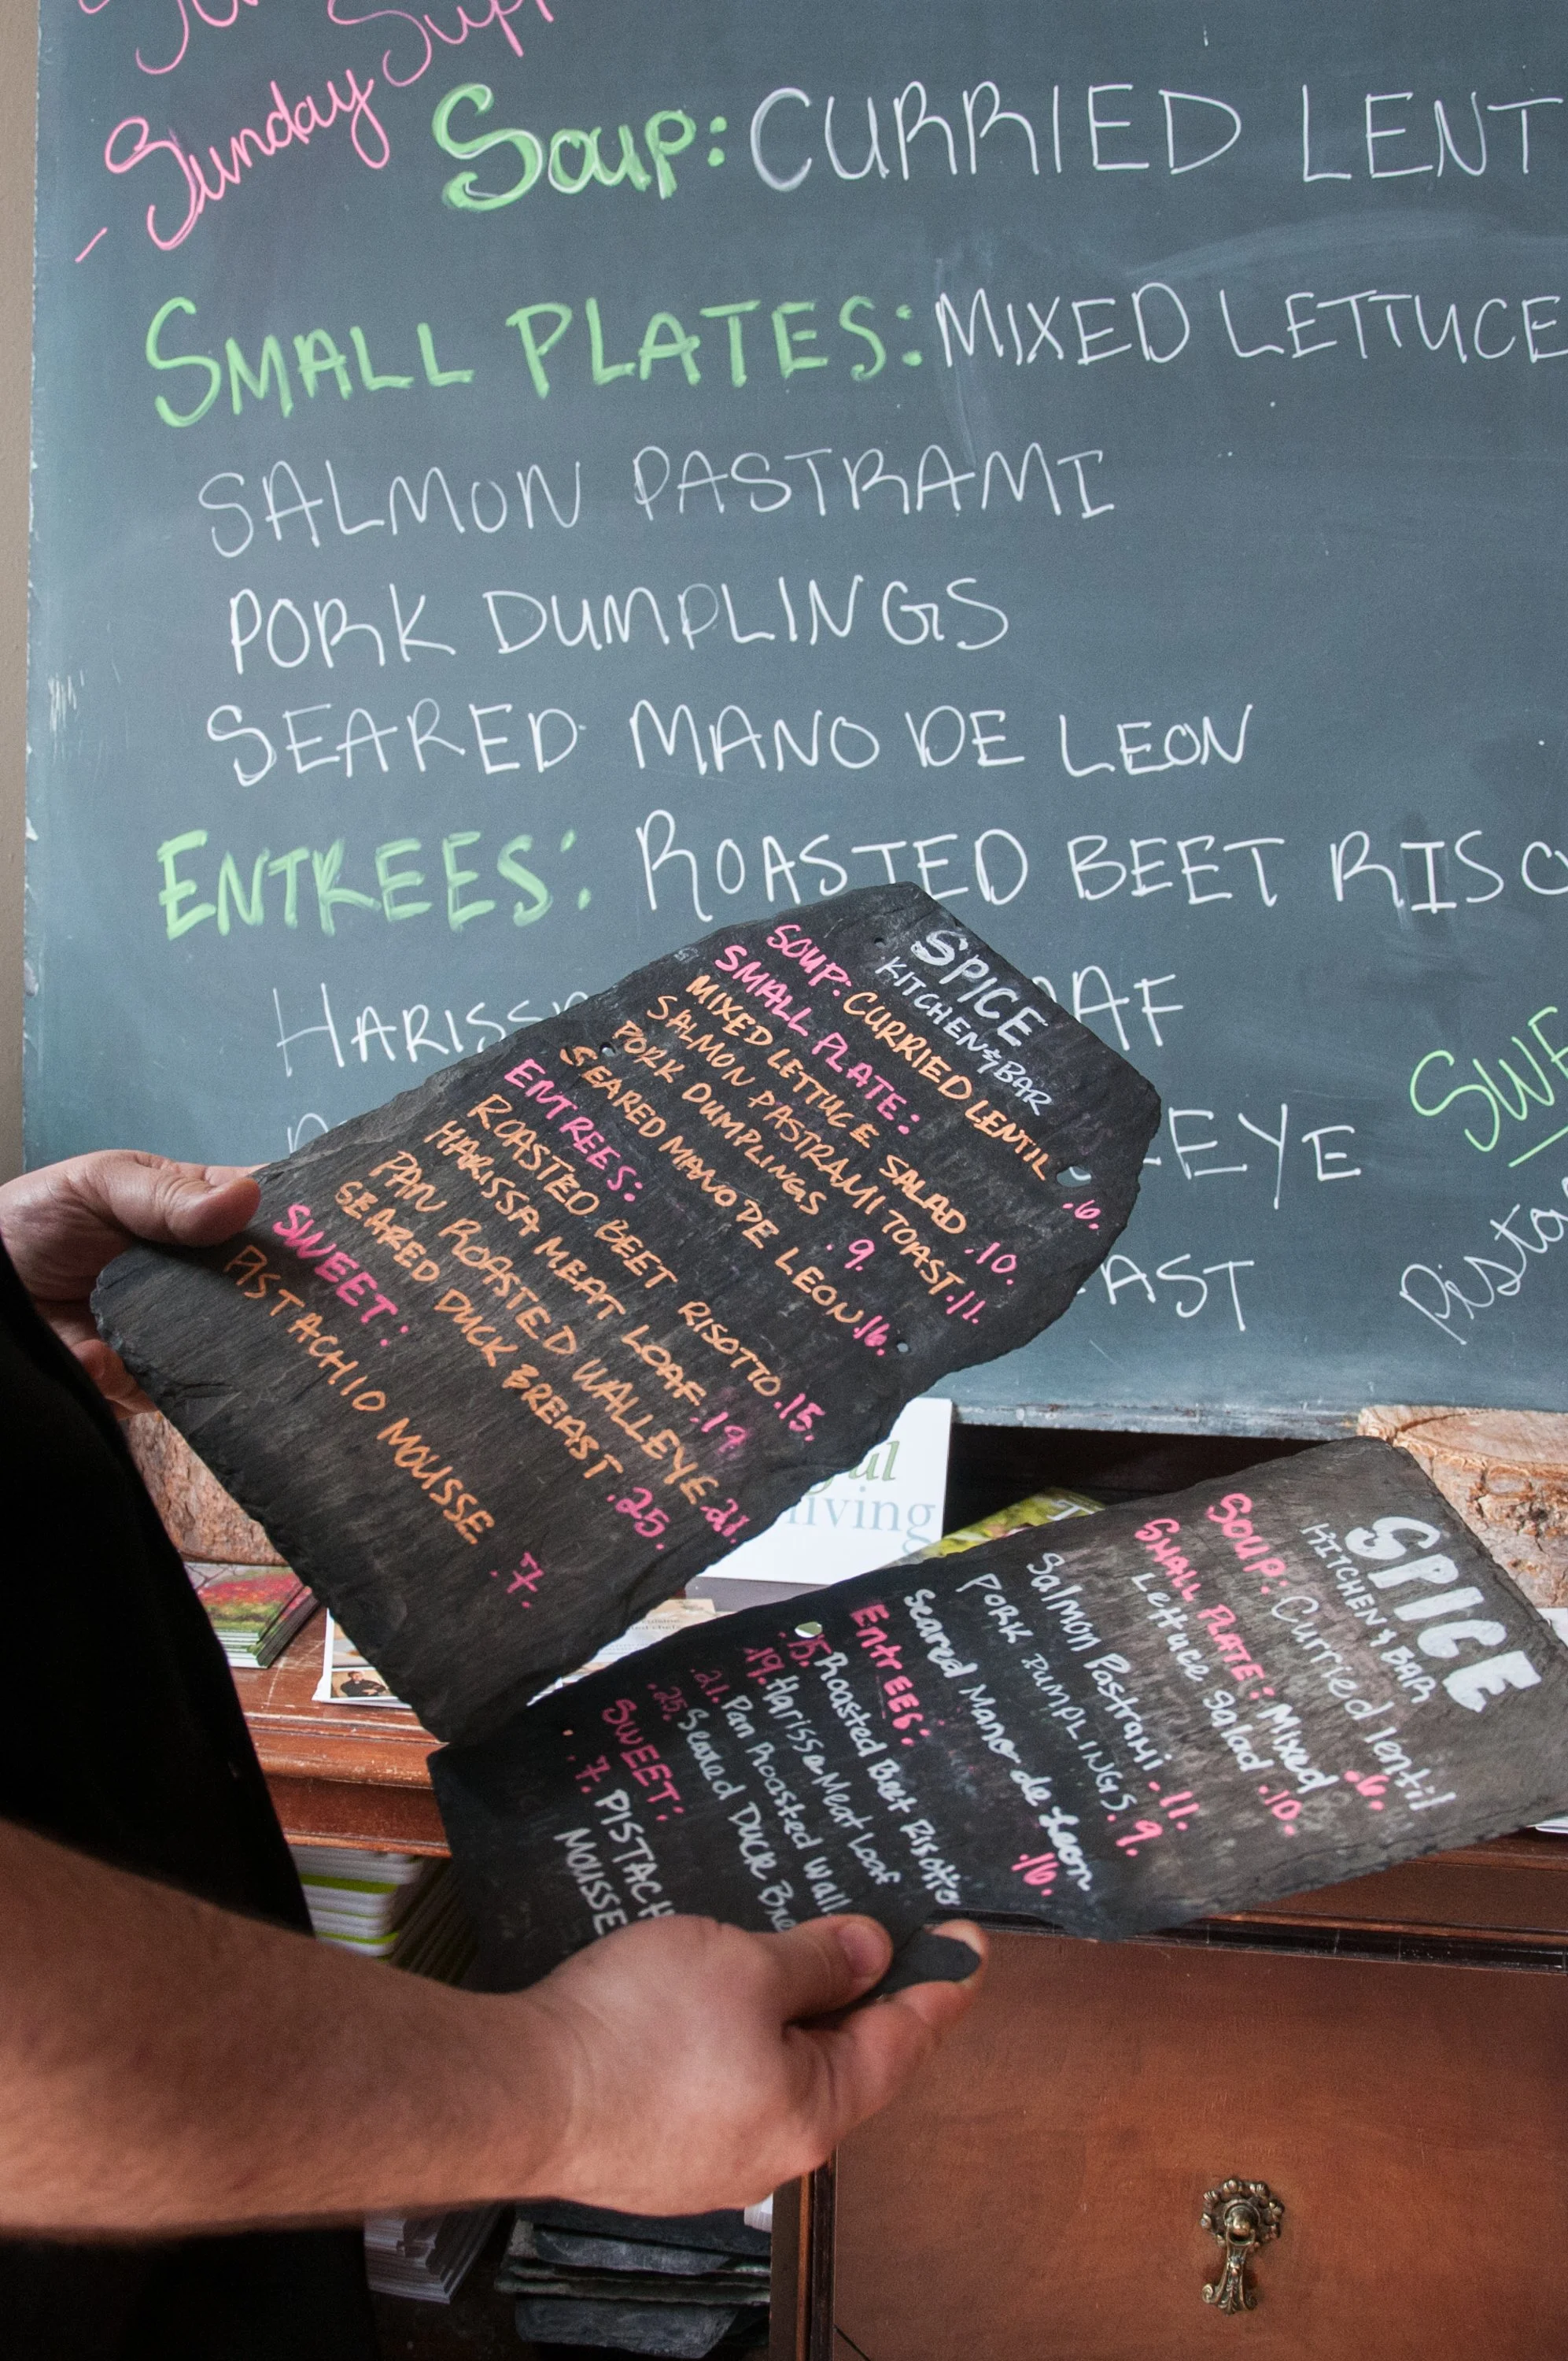 Sunday Supp
- Sunday
Soup: CURRIED LENT
SMALL PLATES: MIXED LETTUCE
SALMON PASTRAMI
PORK DUMPLINGS
SEARED MANO DE LEON
ENTREES: ROASTED BEET RISO
HARISS
OAF
LEYE
AST
SWE
Pista
SPICE
KITCHEN & BAR
SOUP: CURRIED LENTIL .6.
SMALL PLATE:
MIXED LETTUCE SALAD .10.
SALMON PASTRAMI TOAST .11.
PORK DUMPLINGS .9.
SEARED MANO DE LEON .16.
ENTREES:
ROASTED BEET RISOTTO .15.
HARISSA MEAT LOAF .19
PAN ROASTED WALLEYE .21.
SEARED DUCK BREAST .25.
SWEET:
PISTACHIO MOUSSE .7.
ul
living
SPICE
KITCHEN & BAR
SOUP: Curried lentil .6.
SMALL PLATE: Mixed
Lettuce Salad .10.
Salmon Pastrami .11.
PORK DUMPLINGS .9.
Seared Mano de Leon .16.
Entrees:
.15. Roasted Beet Risotto
.19. Harissa Meat Loaf
.21. Pan Roasted Wall
.25. Seared Duck Bre
SWEET:
.7. PISTACH
MOUSSE